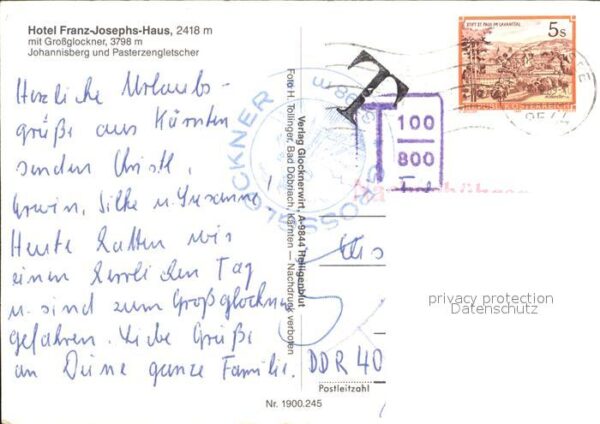 Hotel Franz-Josephs-Haus, 2418 m
mit Großglockner, 3798 m
Johannisberg und Pasterzengletscher
Herzliche Urlaubs-
grüße aus Kärnten
senden Christl,
Erwin, Silke u. Susanne!
Heute hatten wir
einen herrlichen Tag
u. sind zum Großglockner
gefahren. Liebe Grüße
an Deine ganze Familie.
Foto H. Tollinger, Bad Döbriach, Kärnten — Nachdruck verboten
Verlag Glocknerwirt, A-9844 Heiligenblut
GROSSGLOCKNER
STIFT ST. PAUL IM LAVANTTAL
5s
REPUBLIK ÖSTERREICH
T
T
100
800
privacy protection
Datenschutz
DDR 40
Postleitzahl
Nr. 1900.245